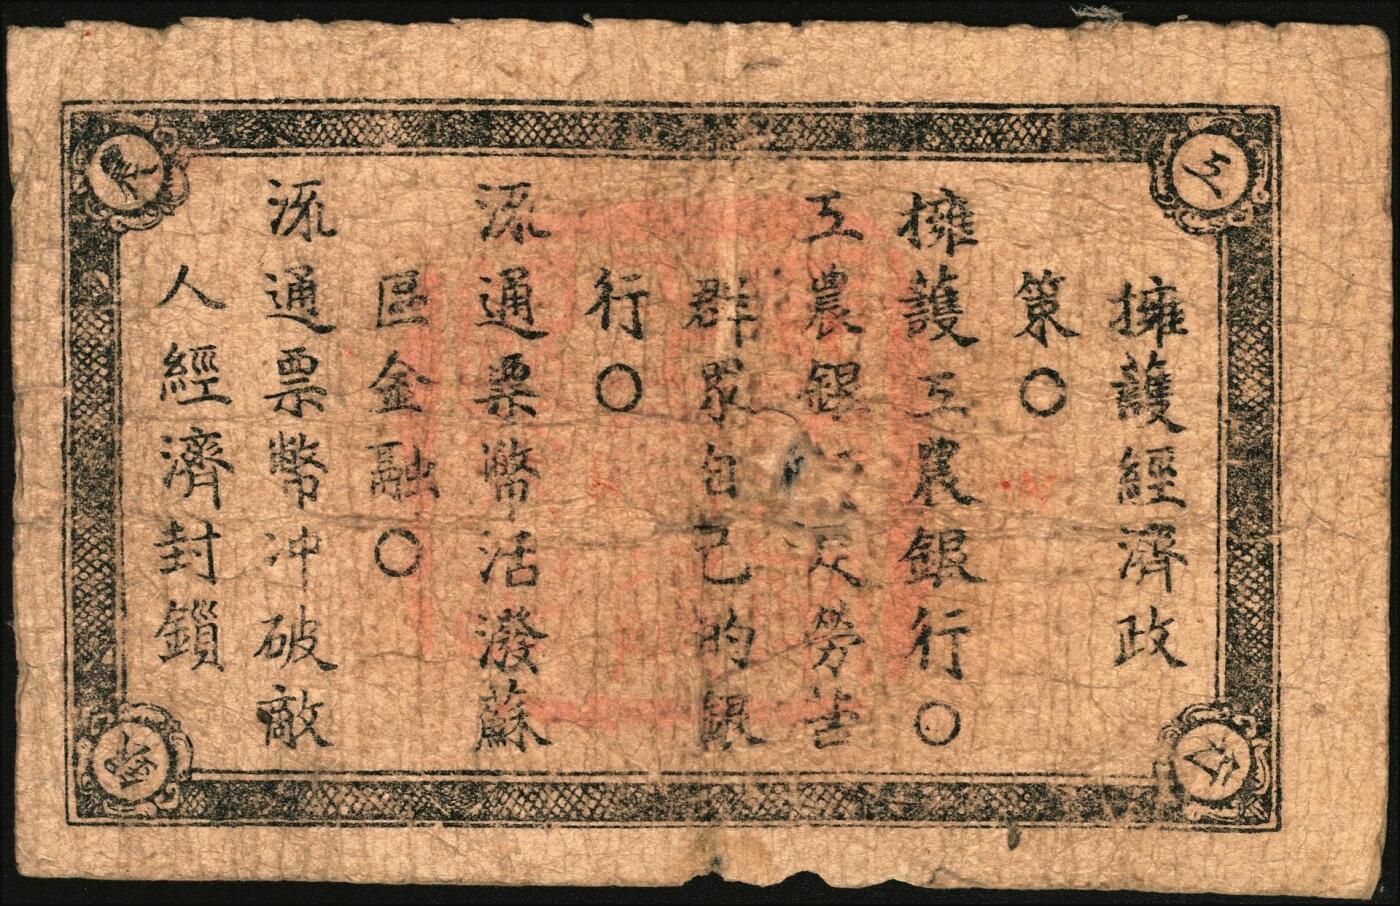 擁護經濟政
策〇
擁護工農銀行〇
工農銀行是勞苦
群眾自己的銀
行〇
流通票幣活潑蘇
區金融〇
流通票幣冲破敵
人經濟封鎖
工
農
銀
行